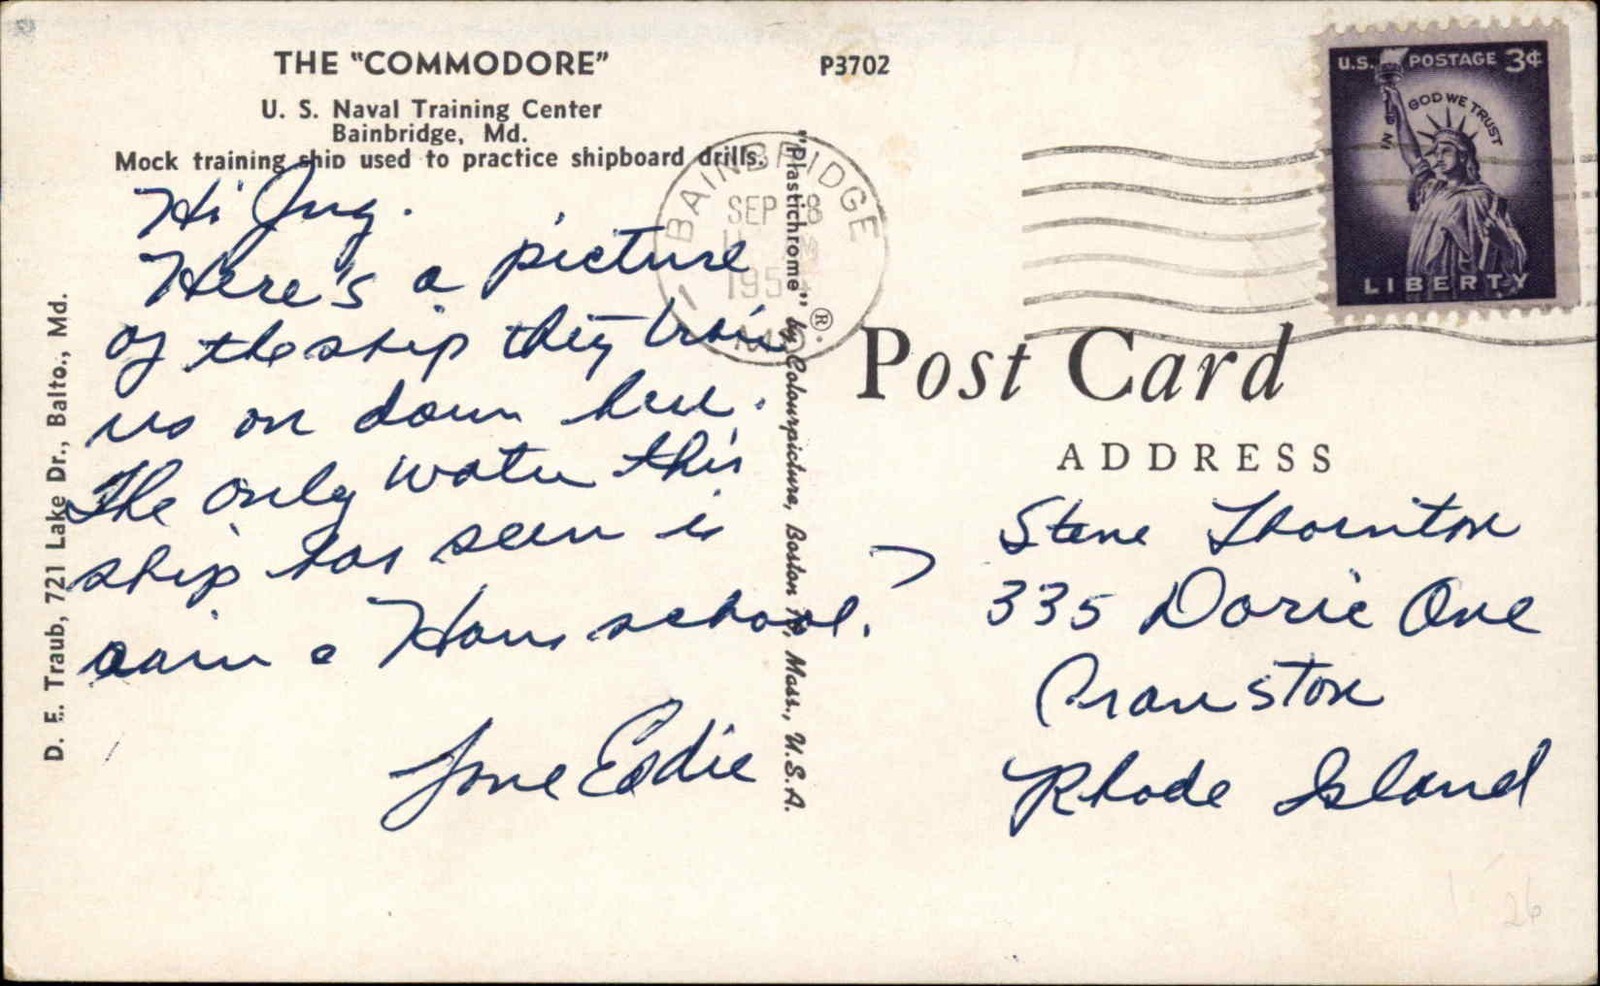 THE "COMMODORE"
P3702
U. S. Naval Training Center
Bainbridge, Md.
Mock training ship used to practice shipboard drills.
Hi
Here's a picture
of the ship they train
us on down here.
The only water this
ship has seen is
rain
school.
Love Eddie
D. E. Traub, 721 Lake Dr., Balto., Md.
"Plastichrome" ® by Colourpicture, Boston 15, Mass., U.S.A.
BAINBRIDGE
SEP 8
195
MD.
U.S. POSTAGE 3¢
IN GOD WE TRUST
LIBERTY
Post Card
ADDRESS
Steve Thornton
335 Doric Ave
Cranston
Rhode Island
26